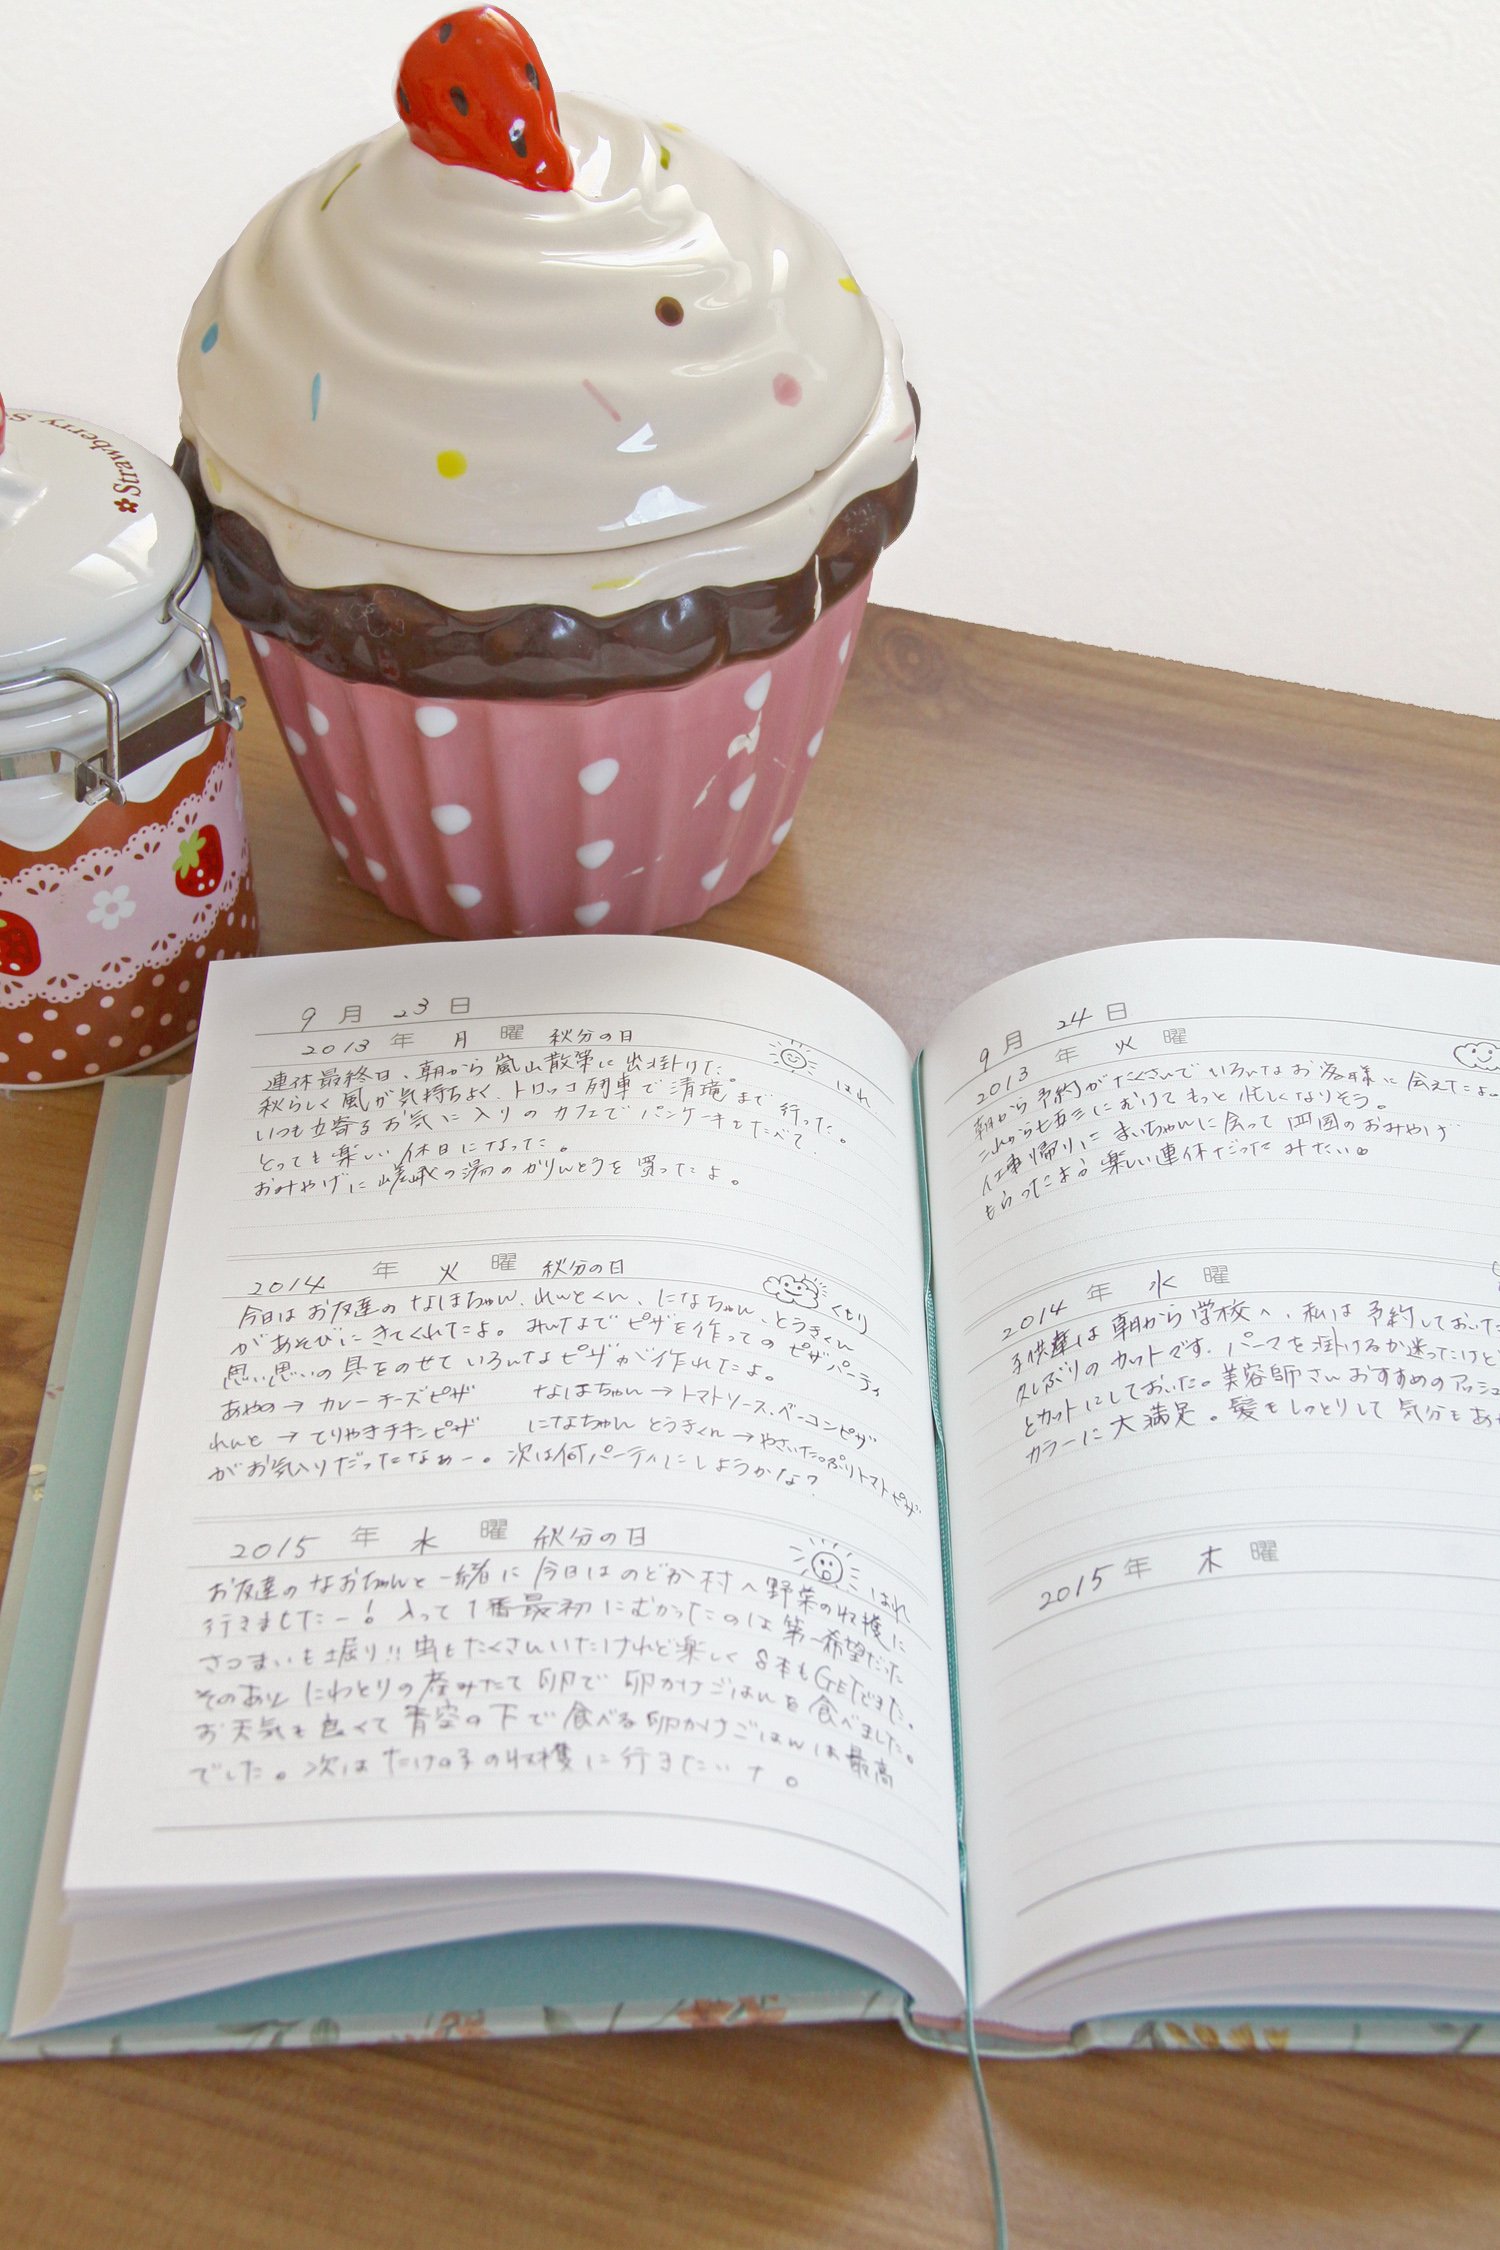 Strawberry
9月23日
2013年 月曜 秋分の日
はれ
連休最終日、朝から嵐山散策に出掛けた。
秋らしく風が気持ちよく、トロッコ列車で清滝まで行った。
いつも立寄るお気に入りのカフェでパンケーキをたべて、
とっても楽しい休日になった。
おみやげに嵯峨の湯のかりんとうを買ったよ。
2014年 火曜 秋分の日
くもり
今日はお友達のなほちゃん、れんとくん、になちゃん、とうきくん
があそびにきてくれたよ。みんなでピザを作ってのピザパーティ
思い思いの具をのせていろんなピザが作れたよ。
あやの→カレーチーズピザ なほちゃん→トマトソース、ベーコンピザ
れんと→てりやきチキンピザ になちゃん とうきくん→やさいたっぷりトマトピザ
がお気入りだったなぁー。次は何パーティにしようかな?
2015年 水曜 秋分の日
はれ
お友達のなおちゃんと一緒に今日はのどか村へ野菜の収穫に
行きましたー!入って1番最初にむかったのは第一希望だった
さつまいも堀り!!虫もたくさんいたけれど楽しく8本もGETできた。
そのあとにわとりの産みたて卵で卵かけごはんを食べました。
お天気も良くて青空の下で食べる卵かけごはんは最高
でした。次はたけの子の収穫に行きたいナ。
9月24日
2013年 火曜
朝から予約がたくさんでいろんなお客様に会えたよ。
これから七五三にむけてもっと忙しくなりそう。
仕事帰りにまいちゃんに会って四国のおみやげ
もらったよ。楽しい連休だったみたい。
2014年 水曜
子供達は朝から学校へ、私は予約しておいた
久しぶりのカットです。パーマを掛けるか迷ったけど
とカットにしておいた。美容師さんおすすめのアッシュ
カラーに大満足。髪もしっとりして気分も
2015年 木曜